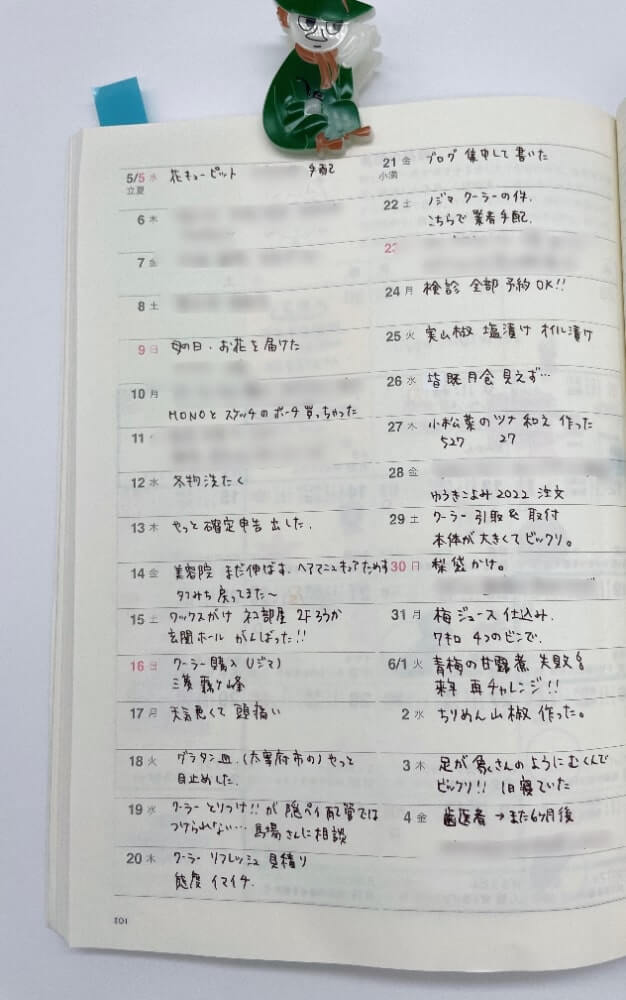 5/5 水 花キューピット 手配
立夏
6 木
7 金
8 土
9 日 母の日.お花を届けた
10 月
MONOと スケッチの ポーチ 買っちゃった
11
12 水 冬物洗たく
13 木 やっと確定申告 出した.
14 金 美容院 まだ伸ばす.ヘアマニキュアためす
タカみち 戻ってきた〜
15 土 ワックスがけ ネコ部屋 2Fろうか
玄関ホール がんばった!!
16 日 クーラー購入(ノジマ)
三菱 霧ヶ峰
17 月 天気悪くて 頭痛い
18 火 グラタン皿.(太宰府市の)やっと
目止めした.
19 水 クーラーとりつけ!!が 隠ペイ配管では
つけられない… 馬場さんに相談
20 木 クーラー リフレッシュ 見積り
態度 イマイチ.
101
21 金 ブログ 集中して書いた
小満
22 土 ノジマ クーラーの件.
こちらで業者手配.
23
24 月 検診 全部 予約 OK!!
25 火 実山椒 塩漬け オイル漬け
26 水 皆既月食 見えず…
27 木 小松菜のツナ和え 作った
527 27
28 金
ゆうきこよみ2022 注文
29 土 クーラー 引取& 取付
本体が大きくてビックリ。
30 日 梨袋かけ。
31 月 梅ジュース 仕込み.
7キロ 4つのビンで.
6/1 火 青梅の甘露煮 失敗
来年 再チャレンジ!!
2 水 ちりめん山椒 作った。
3 木 足が象さんのようにむくんで
ビックリ!! 1日寝ていた
4 金 歯医者→また6ヶ月後